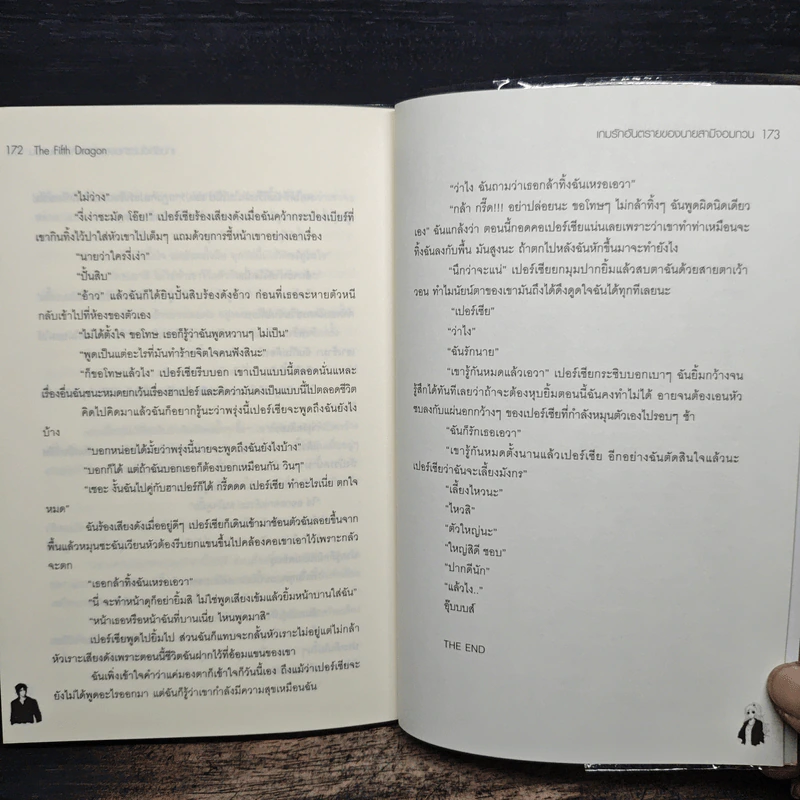 172 The Fifth Dragon
"ไม่ว่าง"
"งี่เง่าชะมัด โอ๊ย!" เปอร์เซียร้องเสียงดังเมื่อฉันคว้ากระป๋องเบียร์ที่
เขากินทิ้งไว้ปาใส่หัวเขาไปเต็มๆ แถมด้วยการชี้หน้าเขาอย่างเอาเรื่อง
"นายว่าใครงี่เง่า"
"ปั้นสิบ"
"อ้าว" แล้วฉันก็ได้ยินปั้นสิบร้องดังอ้าว ก่อนที่เธอจะหายตัวหนี
กลับเข้าไปที่ห้องของตัวเอง
"ไม่ได้ตั้งใจ ขอโทษ เธอก็รู้ว่าฉันพูดหวานๆ ไม่เป็น"
"พูดเป็นแต่อะไรที่มันทำร้ายจิตใจคนฟังสินะ"
"ก็ขอโทษแล้วไง" เปอร์เซียรีบบอก เขาเป็นแบบนี้ตลอดนั่นแหละ
เรื่องอื่นฉันชนะหมดยกเว้นเรื่องฮาเปอร์ และคิดว่ามันคงเป็นแบบนี้ไปตลอดชีวิต
คิดไปคิดมาแล้วฉันก็อยากรู้นะว่าพรุ่งนี้เปอร์เซียจะพูดถึงฉันยังไง
บ้าง
"บอกหน่อยได้มั้ยว่าพรุ่งนี้นายจะพูดถึงฉันยังไงบ้าง"
"บอกก็ได้ แต่ถ้าฉันบอกเธอก็ต้องบอกเหมือนกัน วินๆ"
"เชอะ งั้นฉันไปคู่กับฮาเปอร์ก็ได้ กรี๊ดดด เปอร์เซีย ทำอะไรเนี่ย ตกใจ
หมด"
ฉันร้องเสียงดังเมื่ออยู่ดีๆ เปอร์เซียก็เดินเข้ามาช้อนตัวฉันลอยขึ้นจาก
พื้นแล้วหมุนซะฉันเวียนหัวต้องรีบยกแขนขึ้นไปคล้องคอเขาเอาไว้เพราะกลัว
จะตก
"เธอกล้าทิ้งฉันเหรอเอวา"
"นี่ จะทำหน้าดุก็อย่ายิ้มสิ ไม่ใช่พูดเสียงเข้มแล้วยิ้มหน้าบานใส่ฉัน"
"หน้าเธอหรือหน้าฉันที่บานเนี่ย ไหนพูดมาสิ"
เปอร์เซียพูดไปยิ้มไป ส่วนฉันก็แทบจะกลั้นหัวเราะไม่อยู่แต่ไม่กล้า
หัวเราะเสียงดังเพราะตอนนี้ชีวิตฉันฝากไว้ที่อ้อมแขนของเขา
ฉันเพิ่งเข้าใจคำว่าแค่มองตาก็เข้าใจก็วันนี้เอง ถึงแม้ว่าเปอร์เซียจะ
ยังไม่ได้พูดอะไรออกมา แต่ฉันก็รู้ว่าเขากำลังมีความสุขเหมือนฉัน
เกมรักอันตรายของนายสามีจอมกวน 173
"ว่าไง ฉันถามว่าเธอกล้าทิ้งฉันเหรอเอวา"
"กล้า กรี๊ด!!! อย่าปล่อยนะ ขอโทษๆ ไม่กล้าทิ้งๆ ฉันพูดผิดนิดเดียว
เอง" ฉันแกล้งว่า ตอนนี้กอดคอเปอร์เซียแน่นเลยเพราะว่าเขาทำท่าเหมือนจะ
ทิ้งฉันลงกับพื้น มันสูงนะ ถ้าตกไปหลังฉันหักขึ้นมาจะทำยังไง
"นึกว่าจะแน่" เปอร์เซียยกมุมปากยิ้มแล้วสบตาฉันด้วยสายตาเว้า
วอน ทำไมนัยน์ตาของเขามันถึงได้ดึงดูดใจฉันได้ทุกทีเลยนะ
"เปอร์เซีย"
"ว่าไง"
"ฉันรักนาย"
"เขารู้กันหมดแล้วเอวา" เปอร์เซียกระซิบบอกเบาๆ ฉันยิ้มกว้างจน
รู้สึกได้ทันทีเลยว่าถ้าจะต้องหุบยิ้มตอนนี้ฉันคงทำไม่ได้ อายจนต้องเอนหัว
ซบลงกับแผ่นอกกว้างๆ ของเปอร์เซียที่กำลังหมุนตัวเองไปรอบๆ ช้า
"ฉันก็รักเธอเอวา"
"เขารู้กันหมดตั้งนานแล้วเปอร์เซีย อีกอย่างฉันตัดสินใจแล้วนะ
เปอร์เซียว่าฉันจะเลี้ยงมังกร"
"เลี้ยงไหวนะ"
"ไหวสิ"
"ตัวใหญ่นะ"
"ใหญ่สิดี ชอบ"
"ปากดีนัก"
"แล้วไง.."
จุ๊บบบส์
THE END